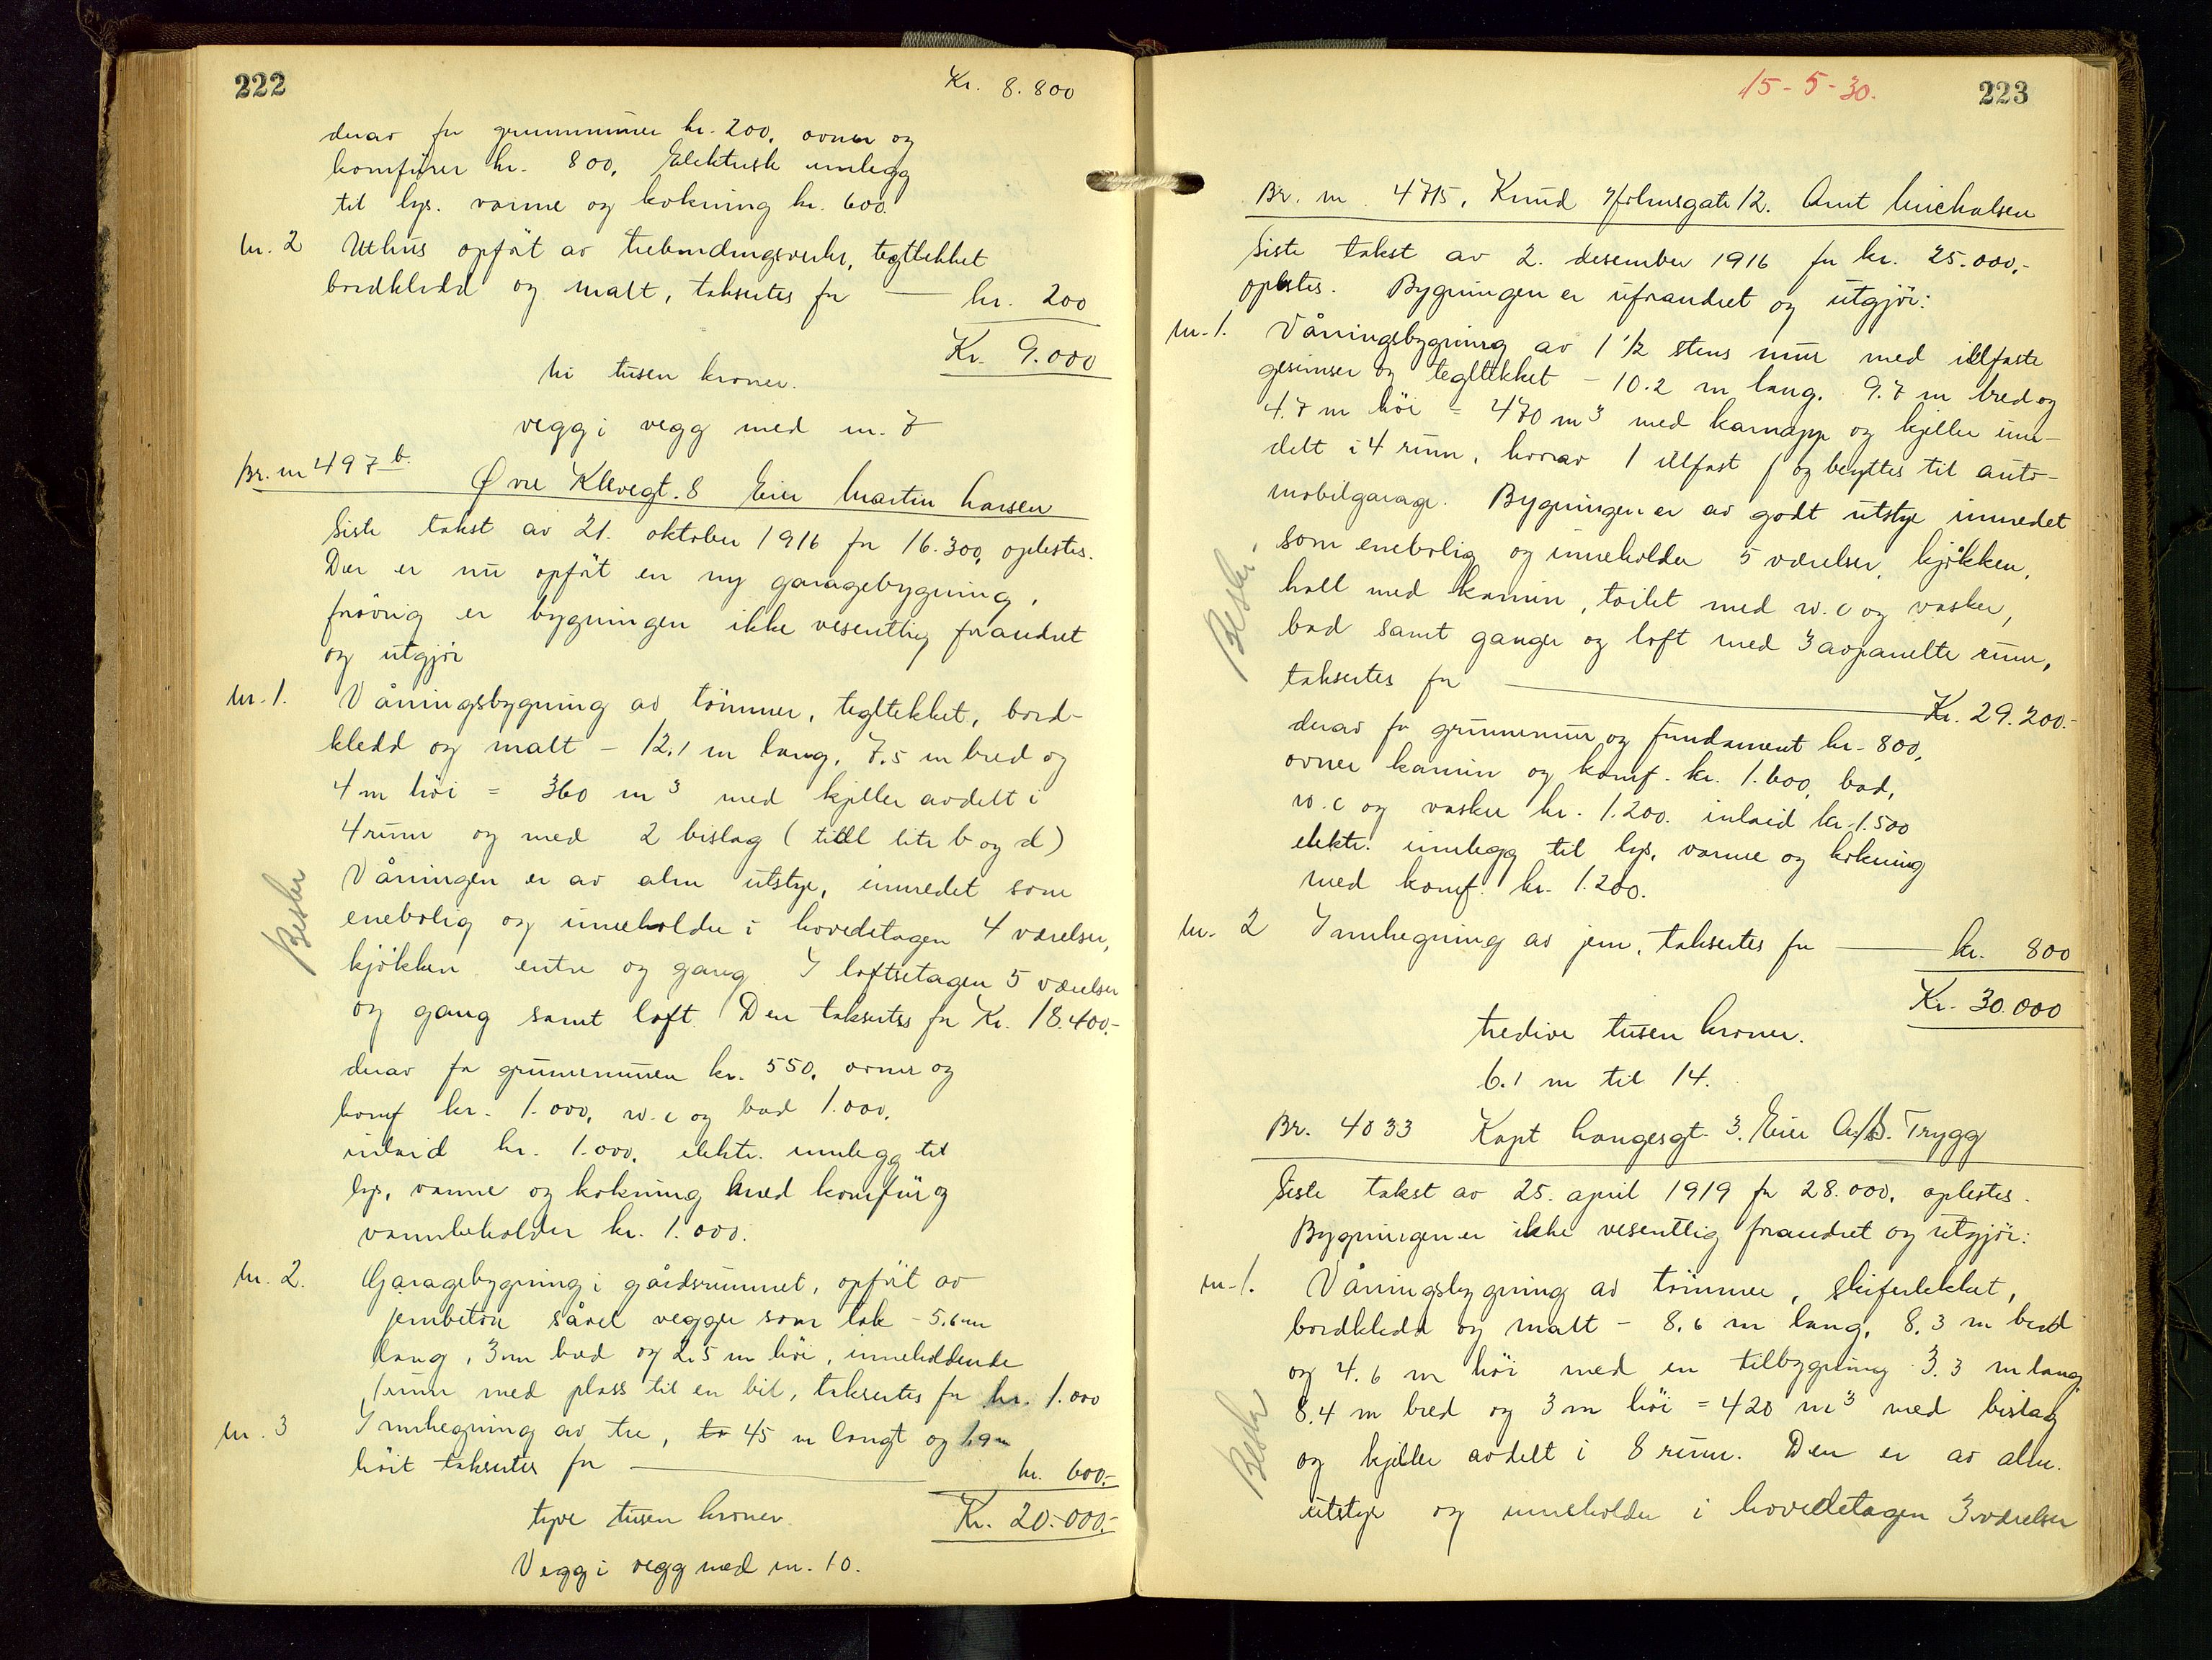 222
Kr. 8.800
derav for grunnmurer kr. 200, ovner og
komfirer kr. 800, Elektrisk innlegg
til lys. varme og kokning kr. 600.
nr. 2 Uthus opført av trebindingsverk, tegltekket
bordkledd og malt, taksertes for — kr. 200
Kr. 9.000
ni tusen kroner.
vegg i vegg med nr. 7
Br. nr 497 b. Øvre Klevegt. 8 Eier Martin Larsen
Siste takst av 21. oktober 1916 for 16.300, oplestes.
Der er nu opført en ny garagebygning,
forøvrig er bygningen ikke vesentlig forandret
og utgjør
nr. 1. Våningsbygning av tømmer, tegltekket, bord-
kledd og malt – 12,1 m lang, 7,5 m bred og
4 m høi = 360 m³ med kjeller avdelt i
4 rum og med 2 bislag (till litr b og d)
Våningen er av alm utstyr, innredet som
enebolig og inneholder i hovedetagen 4 værelser,
kjøkken entre og gang I loftsetagen 5 værelser
og gang samt loft. Den taksertes for Kr. 18.400.-
derav for grunnmuren kr. 550, ovner og
komf kr. 1.000, w.c og bad 1.000,
inlaid kr. 1.000, elektr. innlegg til
lys, varme og kokning med komfur og
vannbeholder kr. 1.000.
Beskr
nr. 2. Garagebygning i gårdsrummet, opført av
jernbeton såvel vegger som tak – 5,6 m
lang, 3 m bred og 2,5 m høi, inneholdende
1 rum med plass til en bil, taksertes for kr. 1.000
nr. 3 Innhegning av tre, to 45 m langt og 1,9 m
høit taksertes for — kr. 600.-
Kr. 20.000.-
tyve tusen kroner.
Vegg i vegg med nr. 10.
15-5-30.
223
Br. nr. 4715, Knud Holmsgate 12. Arnt Michalsen
Siste takst av 2. desember 1916 for kr. 25.000,-
oplestes. Bygningen er uforandret og utgjør:
nr. 1. Våningsbygning av 1 1/2 stens mur med ildfaste
gesimser og tegltekket – 10.2 m lang. 9.7 m bred og
4.7 m høi = 470 m³ med karnapp og kjeller inn-
delt i 4 rum, hvorav 1 ildfast og benyttes til auto-
mobilgarage. Bygningen er av godt utstyr innredet
som enebolig og inneholder 5 værelser, kjøkken,
hall med kamin, toilet med w.c og vasker,
bad samt ganger og loft med 3 avpanelte rum,
taksertes for — Kr. 29.200.-
Beskr.
derav for grunnmur og fundament kr. 800,
ovner kamin og komf. kr. 1.600, bad,
w.c og vasker kr. 1.200. inlaid kr. 1.500
elektr. innlegg til lys, varme og kokning
med komf. kr. 1.200.
nr. 2 Innhegning av jern, taksertes for — kr. 800
Kr. 30.000
tredive tusen kroner.
6.1 m til 14.
Br. 4033 Kapt Langesgt. 3. Eier A/S. Trygg
Siste takst av 25. april 1919 for 28.000, oplestes.
Bygningen er ikke vesentlig forandret og utgjør:
nr. 1. Våningsbygning av tømmer, skifertekket,
bordkledd og malt – 8,6 m lang, 8,3 m bred
og 4.6 m høi med en tilbygning 3.3 m lang
8.4 m bred og 3 m høi = 420 m³ med bislag
og kjeller avdelt i 8 rum. Den er av alm.
utstyr og inneholder i hovedetagen 3 værelser
Beskr